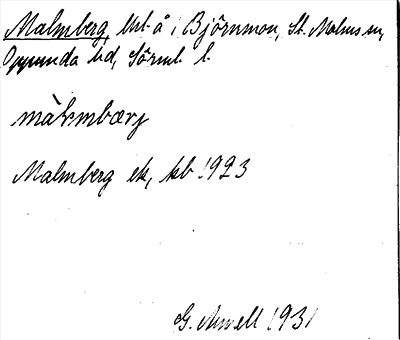 Malmberg lht å i Björnmon, St. Malms sn,
Oppunda hd, Sörml. l.
màlmbærj
Malmberg ek, kb 1923
G. Ahwell 1931